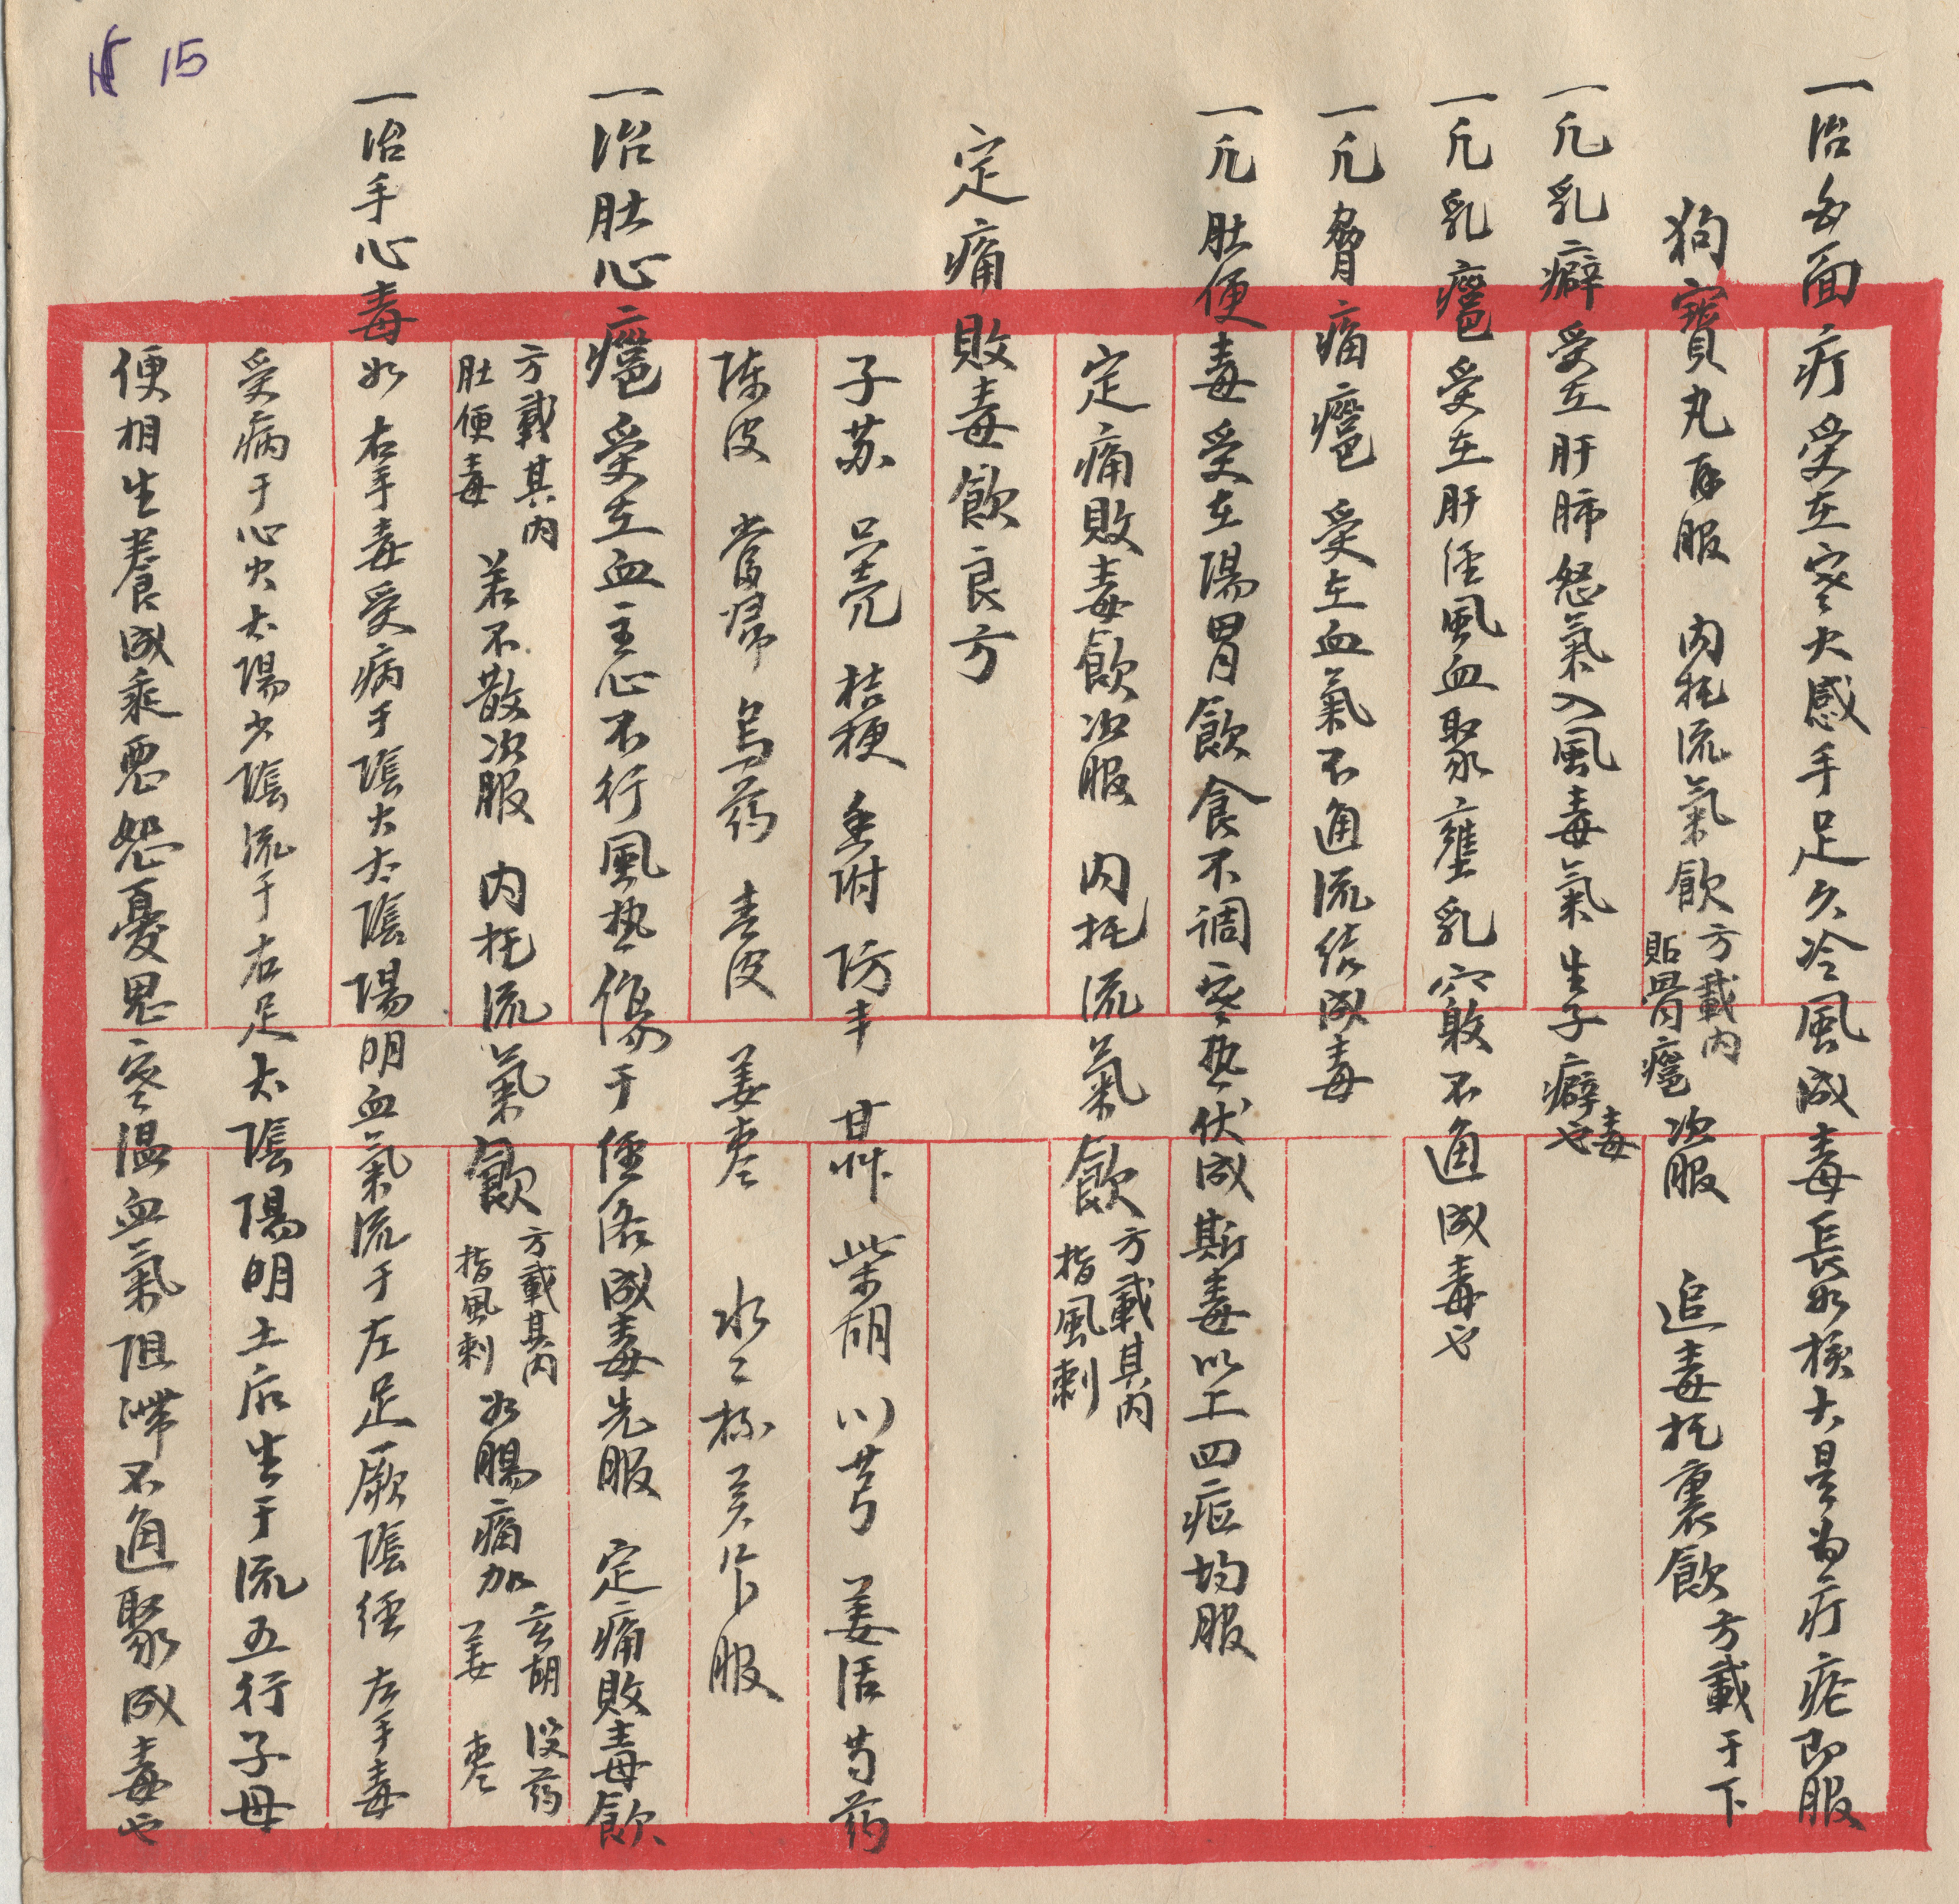 15
一治每面疔受在寒火感手足久冷風成毒長如核大是为疔疮即服
狗寶丸再服 内托流氣飲 方載内貼骨癰 次服 追毒托裏飲 方載于下
一凢乳癖受在肝肺怒氣入風毒氣生子癖毒也
一凢乳癰受在肝徑風血聚壅乳穴敢不通成毒也
一凢脅痛癰受在血氣不通流结成毒
一凢肚便毒受在陽胃飲食不调寒热伏成斯毒以上四症均服
定痛敗毒飲次服 内托流氣飲 方載其内指風刺
定痛敗毒飲良方
子苏 只壳 桔梗 香附 防丰 甘艸 柴胡 川芎 姜活 芍药
陈皮 當帰 烏药 青皮 姜枣 水二杯 煎作服
一治肚心癰受在血主心不行風热傷于徑络成毒先服 定痛敗毒飲
方載其内肚便毒 若不散次服 内托流氣飲 方載其内指風刺 如腸痛加 玄胡 没药 姜 枣
一治手心毒如右手毒受病手隂大太隂陽明血氣流于左足厥隂徑 左手毒
受病于心火太陽少隂流于右足太隂陽明土后生于流五行子母
便相生養成乘惡怒憂思寒温血氣阻滯不通聚成毒也